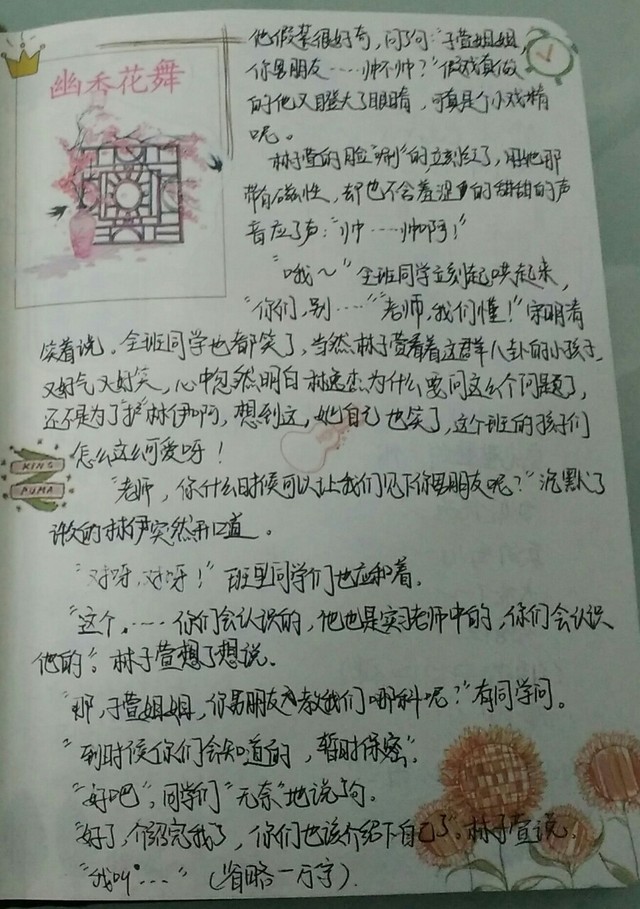 幽香花舞
他假装很好奇，问了句："子萱姐姐，
你男朋友……帅不帅？"假戏真做
的他又瞪大了眼睛，可真是个小戏精
呢。
林子萱的脸"唰"的立刻红了，用她那
带有磁性，却也不含羞涩的甜甜的声
音应了声："帅……帅啊！"
"哦～"全班同学立刻起哄起来，
"你们，别……""老师，我们懂！"宋明清
笑着说。全班同学也都笑了，当然林子萱看着这群八卦的小孩子，
又好气又好笑，心中忽然明白林逸杰为什么要问这么个问题了，
还不是为了护林伊啊，想到这，她自己也笑了，这个班的孩子们
怎么这么可爱呀！
KING
PUMA
"老师，你什么时候可以让我们见下你男朋友呢？"沉默了
许久的林伊突然开口道。
"对呀，对呀！"班里同学们也应和着。
"这个……你们会认识的，他也是实习老师中的，你们会认识
他的"。林子萱想了想说。
"那，子萱姐姐，你男朋友教我们哪科呢？"有同学问。
"到时候你们会知道的，暂时保密"。
"好吧"，同学们"无奈"地说了句。
"好了，介绍完我了，你们也该介绍下自己了"。林子萱说。
"我叫……"（省略一万字）